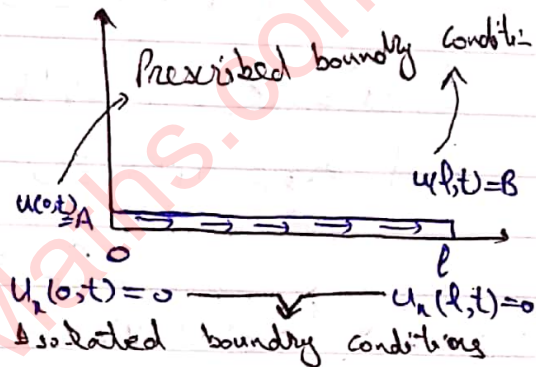 Prescribed boundry conditi-
u(0,t)=A
u(l,t)=B
0 l
Ux(0,t)=0 Ux(l,t)=0
Isolated boundry conditions
Maths.com